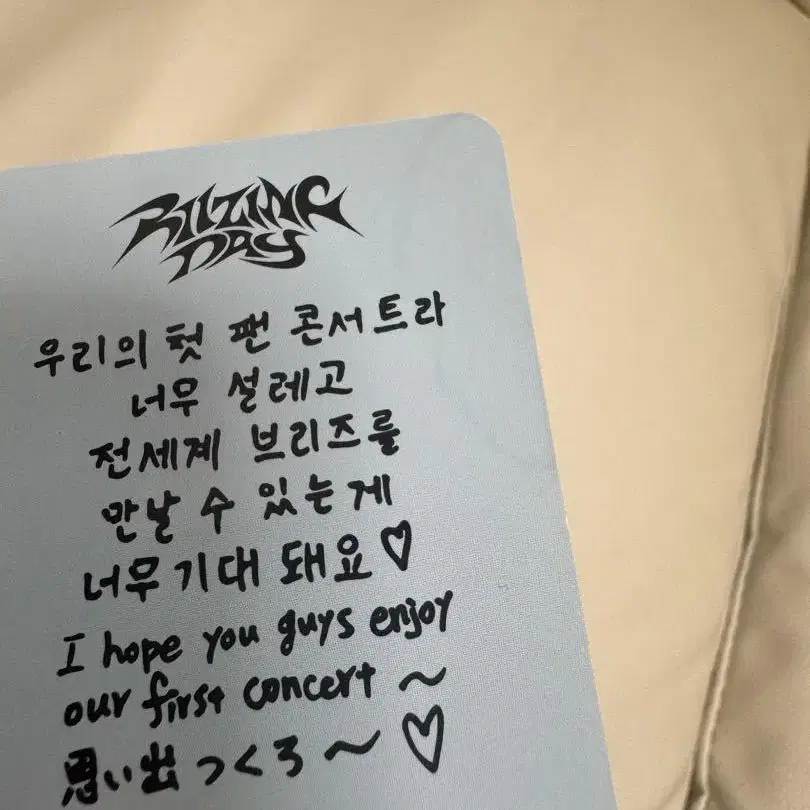 RIIZING
DAY
우리의 첫 팬 콘서트라
너무 설레고
전세계 브리즈를
만날 수 있는게
너무 기대 돼요♡
I hope you guys enjoy
our first concert ~
思い出つくろ～♡